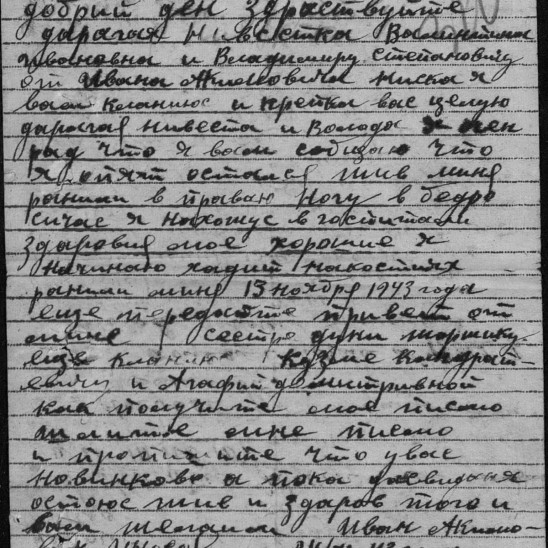 добрий ден здраствуйте
дарагая нивестка Валинтина
Ивановна и Владимиру степановичу
от Ивана Акимовича ниска я
вам кланиюс и крепка вас целую
дарагая нивеста и Володя
рад что я вам собщаю что
я опят остался жив миня
ранили в праваю ногу в бедро
сичас я нахожус в госпитали
здаровия мое хорошие я
начинаю хадит накостилях
ранили миня 13 ноября 1943 года
еще передайте привет от
мине сестре дуни
еще кланиюс Казме Кандрат-
евичу и Агафий дмитривной
как получите мое писмо
пишите мне писмо
и пропишите что увас
новинкова а пока досвиданя
остаюс жив и здаров того и
вам желаим Иван Акимо-